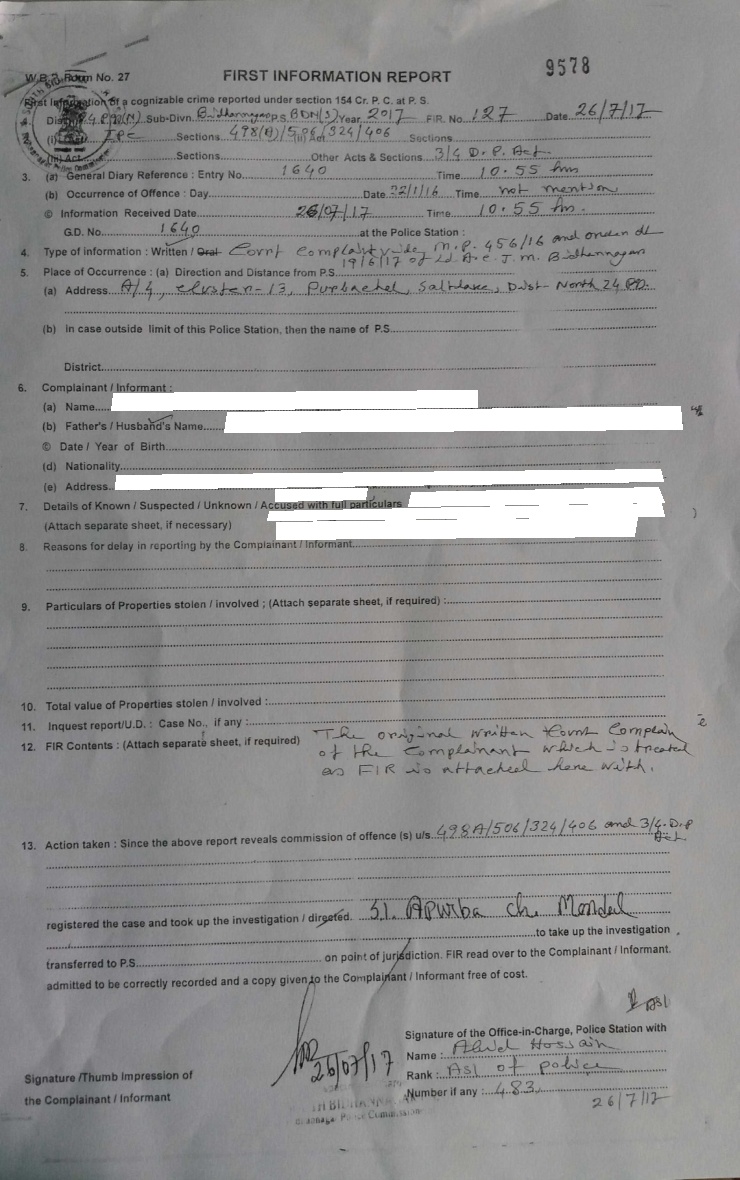 9578
W.B.P. Form No. 27
FIRST INFORMATION REPORT
First Information of a cognizable crime reported under section 154 Cr. P. C. at P. S.
Sub-Divn. Bidhannagar P.S. BDN(S) Year 2017 FIR. No. 127 Date 26/7/17
(i) Act IPC Sections 498(A)/506/324/406 Sections
(iii) Act Sections Other Acts & Sections 3/4 D. P. Act
3. (a) General Diary Reference : Entry No. 1640 Time 10.55 hrs
(b) Occurrence of Offence : Day Date 22/1/16 Time not mention
© Information Received Date 26/07/17 Time 10.55 hrs.
G.D. No. 1640 at the Police Station :
4. Type of information : Written / Oral Court Complaint vide M.P. 456/16 and order dt
19/6/17 of Ld A.C.J.M. Bidhannagar
5. Place of Occurrence : (a) Direction and Distance from P.S.
(a) Address A/4, Cluster-13, Purbachal, Saltlake, Dist- North 24
(b) In case outside limit of this Police Station, then the name of P.S.
District
6. Complainant / Informant :
(a) Name
(b) Father's / Husband's Name
© Date / Year of Birth
(d) Nationality
(e) Address
7. Details of Known / Suspected / Unknown / Accused with full particulars
(Attach separate sheet, if necessary)
8. Reasons for delay in reporting by the Complainant / Informant
9. Particulars of Properties stolen / involved ; (Attach separate sheet, if required) :
10. Total value of Properties stolen / involved :
11. Inquest report/U.D. : Case No., if any :
12. FIR Contents : (Attach separate sheet, if required) The original written Court Complain
of the Complainant which is treated
as FIR is attached here with.
13. Action taken : Since the above report reveals commission of offence (s) u/s. 498A/506/324/406 and 3/4 D.P
Act
registered the case and took up the investigation / directed. S.I. Apurba ch. Mondal
to take up the investigation
transferred to P.S. on point of jurisdiction. FIR read over to the Complainant / Informant.
admitted to be correctly recorded and a copy given to the Complainant / Informant free of cost.
ASI
Signature of the Office-in-Charge, Police Station with
Name : Abul Hossain
26/07/17
Rank : ASI of police
Signature /Thumb Impression of
Number if any : 483
the Complainant / Informant
26/7/17